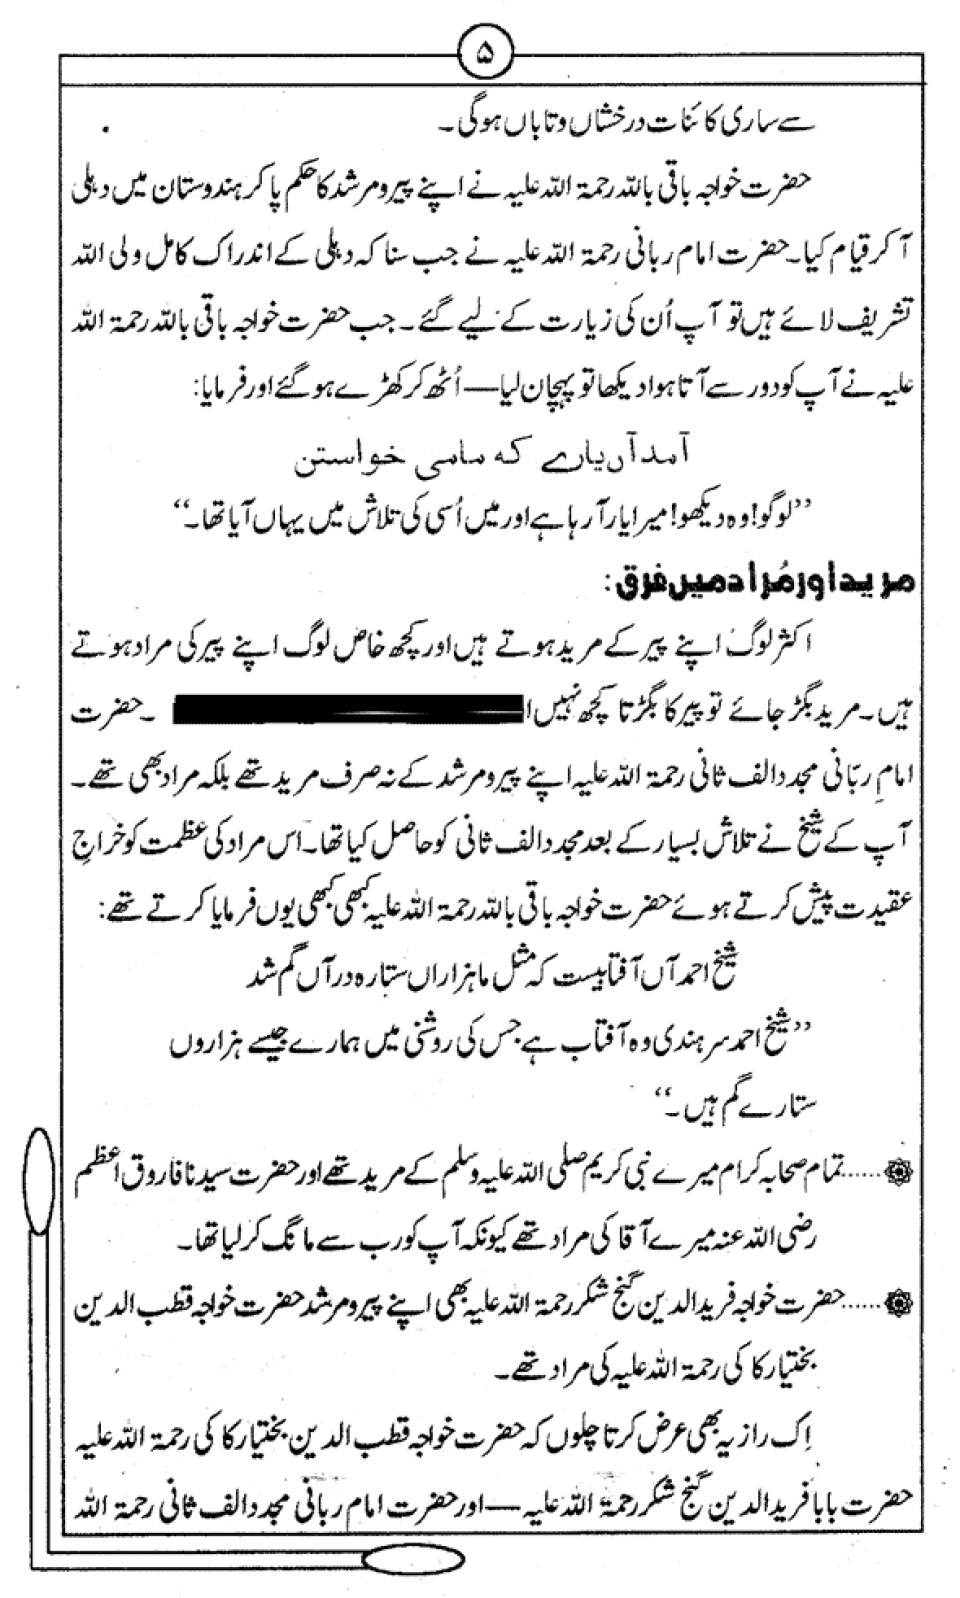 ۵
سے ساری کائنات درخشاں و تاباں ہوگی۔
حضرت خواجہ باقی باللہ رحمۃ اللہ علیہ نے اپنے پیر و مرشد کا حکم پا کر ہندوستان میں دہلی
آ کر قیام کیا۔ حضرت امام ربانی رحمۃ اللہ علیہ نے جب سنا کہ دہلی کے اندر اک کامل ولی اللہ
تشریف لائے ہیں تو آپ اُن کی زیارت کے لیے گئے۔ جب حضرت خواجہ باقی باللہ رحمۃ اللہ
علیہ نے آپ کو دور سے آتا ہوا دیکھا تو پہچان لیا— اُٹھ کر کھڑے ہو گئے اور فرمایا:
آمد آں یارے کہ مامی خواستن
’’لوگو! وہ دیکھو! میرا یار آ رہا ہے اور میں اُسی کی تلاش میں یہاں آیا تھا۔‘‘
مرید اور مُراد میں فرق:
اکثر لوگ اپنے پیر کے مرید ہوتے ہیں اور کچھ خاص لوگ اپنے پیر کی مراد ہوتے
ہیں۔ مرید بگڑ جائے تو پیر کا بگڑتا کچھ نہیں ا ۔ حضرت
امامِ ربّانی مجدد الف ثانی رحمۃ اللہ علیہ اپنے پیر و مرشد کے نہ صرف مرید تھے بلکہ مراد بھی تھے۔
آپ کے شیخ نے تلاش بسیار کے بعد مجدد الف ثانی کو حاصل کیا تھا۔ اس مراد کی عظمت کو خراجِ
عقیدت پیش کرتے ہوئے حضرت خواجہ باقی باللہ رحمۃ اللہ علیہ کبھی کبھی یوں فرمایا کرتے تھے:
شیخ احمد آں آفتابیست کہ مثل ما ہزاراں ستارہ در آں گم شد
’’شیخ احمد سرہندی وہ آفتاب ہے جس کی روشنی میں ہمارے جیسے ہزاروں
ستارے گم ہیں۔‘‘
......تمام صحابہ کرام میرے نبی کریم صلی اللہ علیہ وسلم کے مرید تھے اور حضرت سیدنا فاروق اعظم
رضی اللہ عنہ میرے آقا کی مراد تھے کیونکہ آپ کو رب سے مانگ کر لیا تھا۔
......حضرت خواجہ فرید الدین گنج شکر رحمۃ اللہ علیہ بھی اپنے پیر و مرشد حضرت خواجہ قطب الدین
بختیار کا کی رحمۃ اللہ علیہ کی مراد تھے۔
اِک راز یہ بھی عرض کرتا چلوں کہ حضرت خواجہ قطب الدین بختیار کا کی رحمۃ اللہ علیہ
حضرت بابا فرید الدین گنج شکر رحمۃ اللہ علیہ— اور حضرت امام ربانی مجدد الف ثانی رحمۃ اللہ